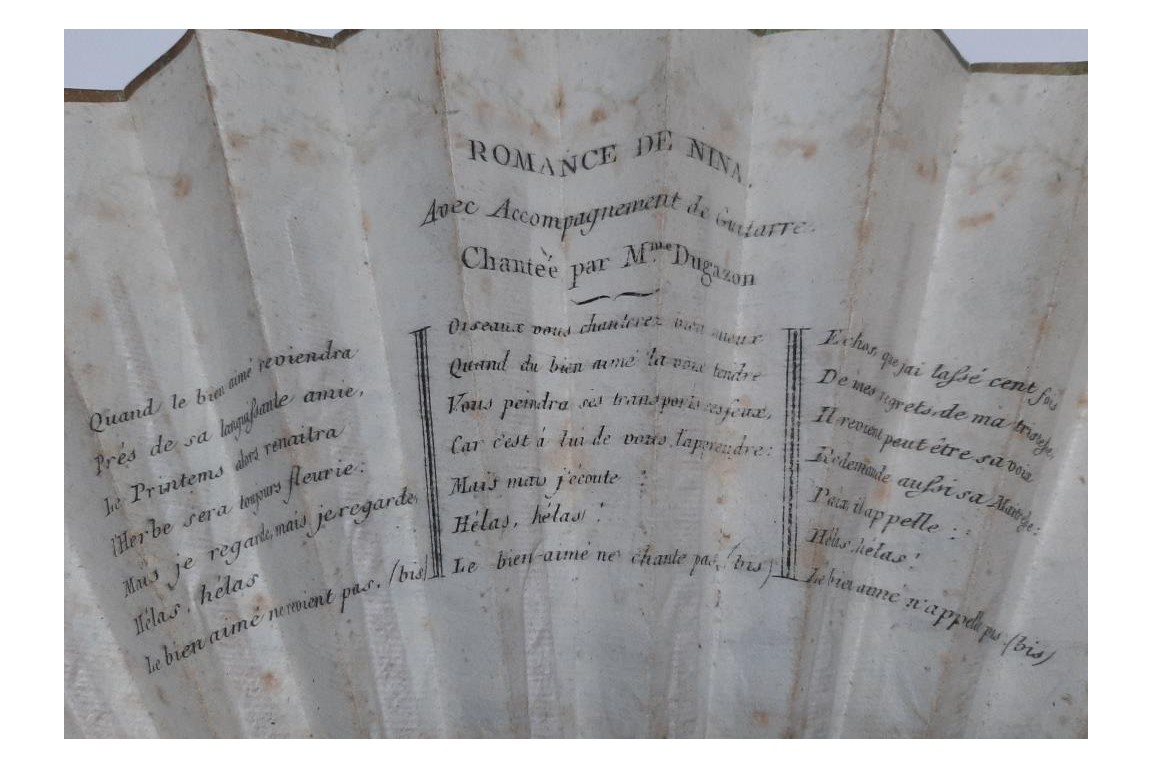 ROMANCE DE NINA.
Avec Accompagnement de Guitarre.
Chanteè par M.me Dugazon
Quand le bien aimé reviendra
Prés de sa languissante amie,
Le Printems alors renaitra
l'Herbe sera toujours fleurie:
Mais je regarde, mais je regarde,
Hélas, hélas
Le bien aimé ne revient pas. (bis)
Oiseaux vous chanterez bien mieux
Quand du bien aimé la voix tendre
Vous peindra ses transports ses feux,
Car c'est á lui de vous l'apprendre:
Mais mais j'écoute :
Hélas, hélas !
Le bien-aimé ne chante pas, (bis)
Echos, que j'ai lassé cent fois
De mes regrets, de ma tristesse,
Il revient peut être sa voix
Redemande aussi sa Maitresse:
Paix, il appelle : :
Hélas, hélas !
Le bien aimé n'appelle pas. (bis)